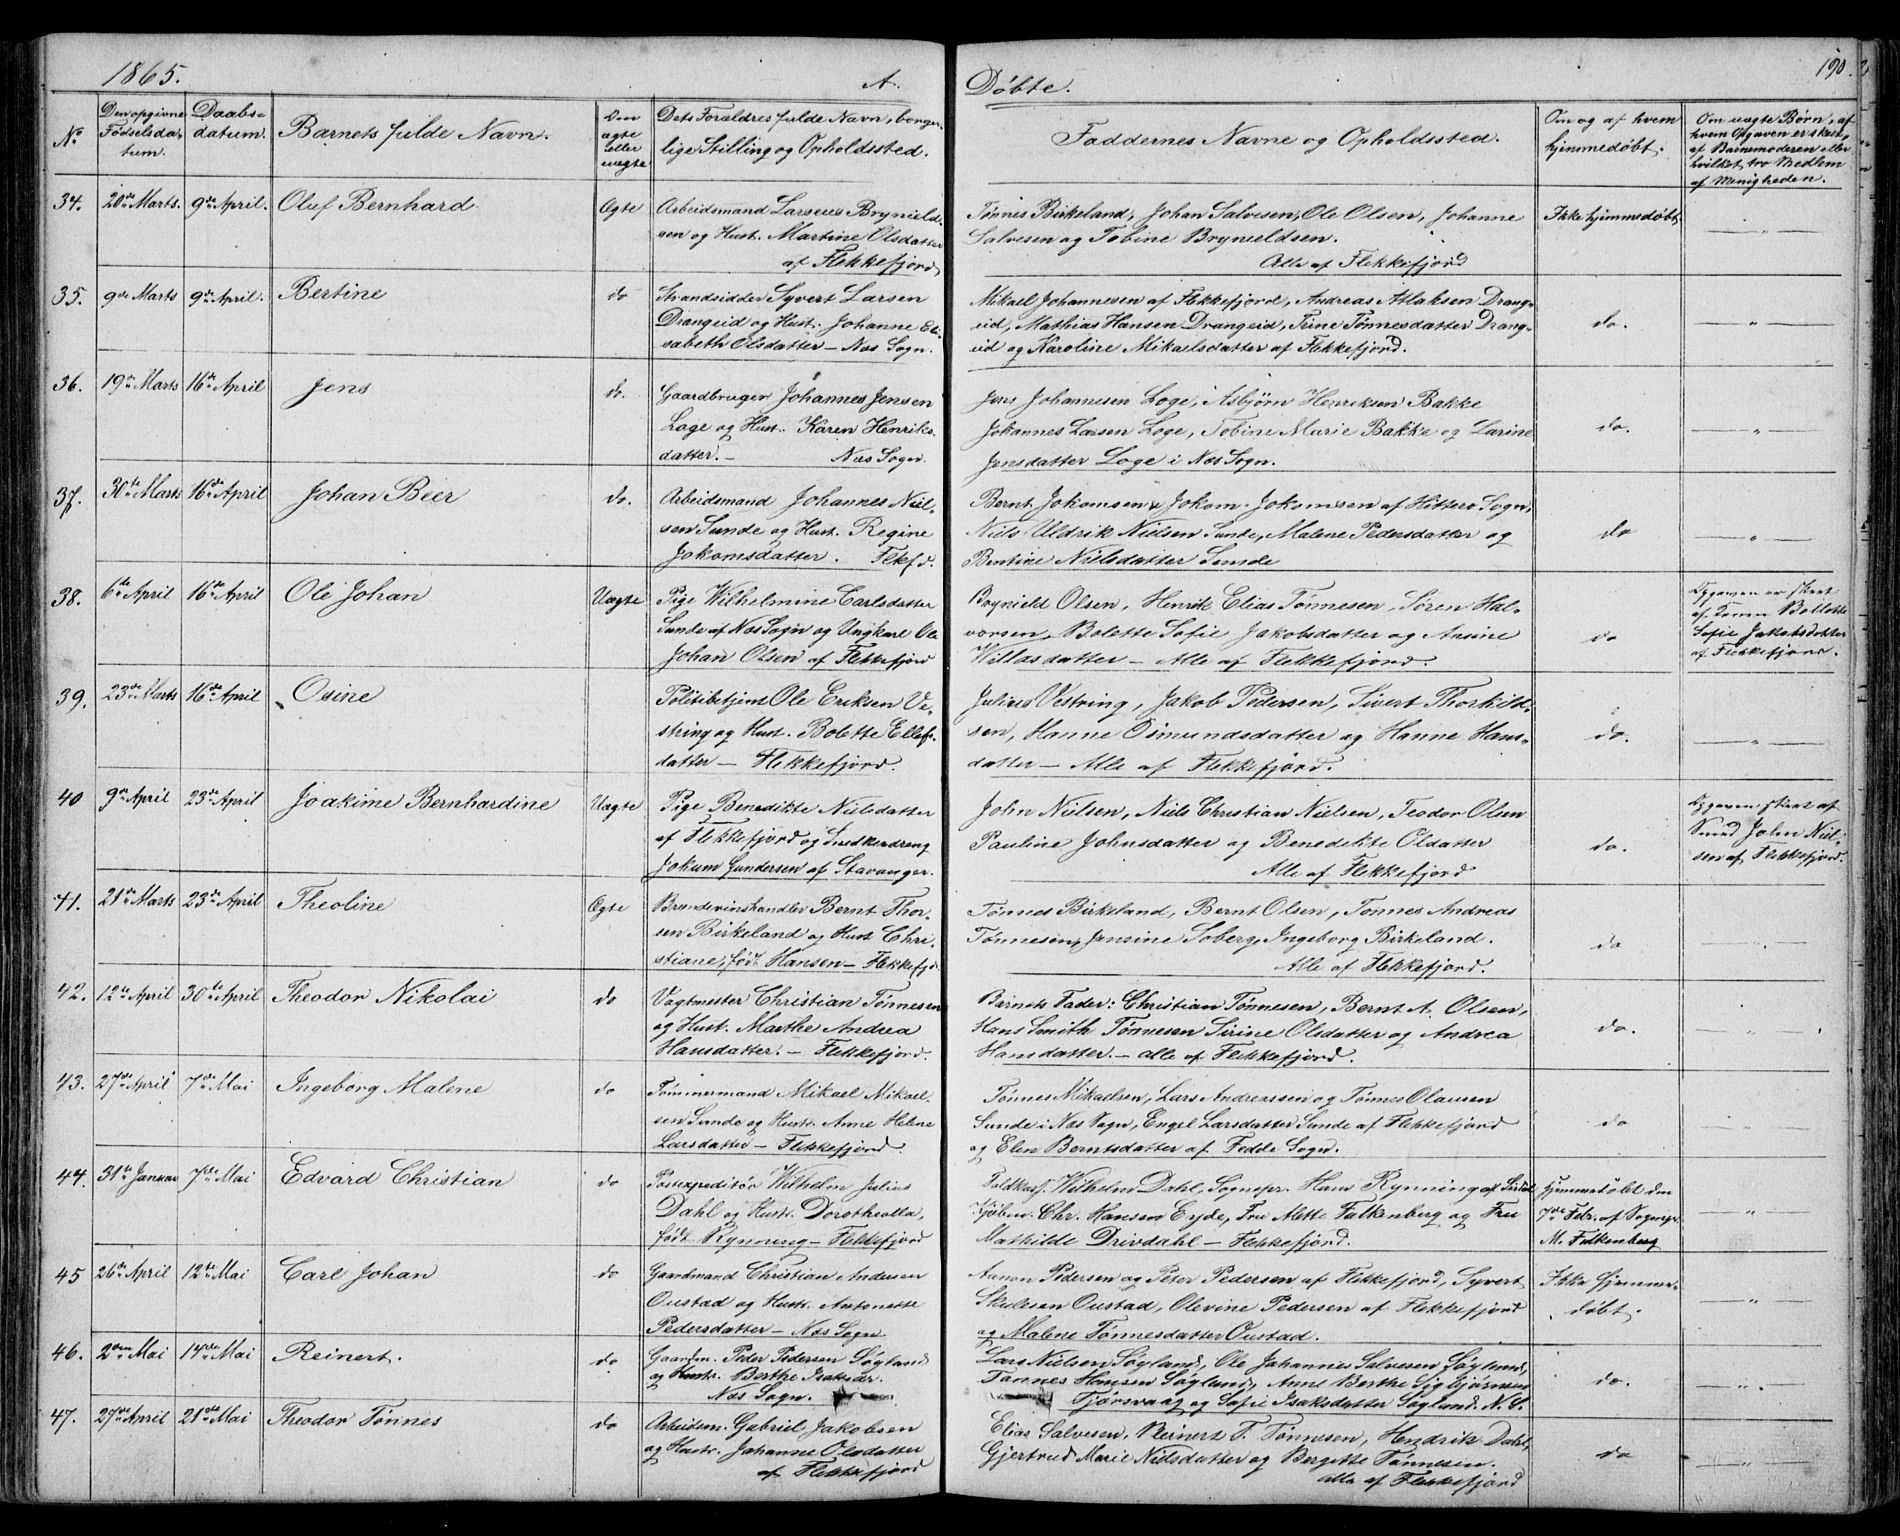 1865.
A.
Døbte.
190.
No
Den opgivne Fødselsdatum.
Daabsdatum.
Barnets fulde Navn.
Den ægte eller uægte
Dets Forældres fulde Navn, borgerlige Stilling og Opholdssted.
Faddernes Navne og Opholdssted.
Om og af hvem hjemmedøbt.
Om uægte Børn, af hvem Opgaven er skeet, af Barnemoderen eller hvilket tro Medlem af Menigheden.
34. 20de Marts. 9de April. Oluf Bernhard Ægte
Arbeidsmand Larseus Brynield-
sen og Hust. Martine Olsdatter
af Flekkefjord
Tønnes Birkeland, Johan Salvesen, Ole Olsen, Johanne
Salvesen og Tobine Brynieldsen.
Alle af Flekkefjord
Ikke hjemmedøbt
— " —
35. 9de Marts 9de April. Bertine do
Strandsidder Syvert Larsen
Drangeid og Hust. Johanne Eli-
sabeth Olsdatter — Næs Sogn.
Mikael Johannesen af Flekkefjord, Andreas Atlaksen Drang-
eid, Mathias Hansen Drangeid, Trine Tønnesdatter Drang-
eid og Karoline Mikaelsdatter af Flekkefjord.
do.
— " —
36. 19de Marts 16de April Jens do.
Gaardbruger Johannes Jensen
Loge og Hust. Karen Henriks-
datter. — Næs Sogn.
Jens Johannesen Loge, Asbjørn Henriksen Bakke
Johannes Larsen Loge, Tobine Marie Bakke og Larine
Jensdatter Loge i Næs Sogn.
do.
— " —
37. 30te Marts 16de April Johan Beer do.
Arbeidsmand Johannes Niel-
sen Sunde og Hust. Regine
Jokomsdatter. Flekfd.
Bernt Jokomsen & Jokom Jokomsen af Hitterø Sogn,
Niels Uldrik Nielsen Sunde, Malene Pedersdatter og
Bentine Nielsdatter Sunde
do
— " —
38. 6te April 16de April Ole Johan Uægte
Pige Wilhelmine Carlsdatter
Sunde af Næs Sogn og Ungkarl Ole
Johan Olsen af Flekkefjord
Brynield Olsen, Henrik Elias Tønnesen, Søren Hal-
vorsen, Bolette Sofie Jakobsdatter og Ansine
Willasdatter — Alle af Flekkefjord.
do
Opgaven er skeet
af Bolette
Sofie Jakobsdatter
af Flekkefjord.
39. 23de Marts 16de April Osine
Politibetjent Ole Eriksen Ve-
string og Hust. Bolette Ellefs-
datter — Flekkefjord.
Julius Vestring, Jakob Pedersen, Sivert Thorkild-
sen, Hanne Osmundsdatter og Hanne Hans-
datter — Alle af Flekkefjord.
do.
— " —
40 9de April 23de April Joakime Bernhardine Uægte
Pige Benedikte Nielsdatter
af Flekkefjord og Snedkerdreng
Jokum Gundersen af Stavanger.
John Nielsen, Niels Christian Nielsen, Teodor Olsen
Pauline Johnsdatter og Benedikte Oldatter
Alle af Flekkefjord
do.
Opgaven skeet af
Smed John Niel-
sen af Flekkefjord.
41. 21de Marts 23de April Theoline Ægte
Brændevinshandler Bernt Thor-
sen Birkeland og Hust. Chri-
stiane, født Hansen — Flekkefjd.
Tønnes Birkeland, Bernt Olsen, Tønnes Andreas
Tønnesen, Jensine Soberg, Ingeborg Birkeland.
Alle af Flekkefjord.
do
42. 12te April 30te April Theodor Nikolai do
Vagtmester Christian Tønnesen
og Hust. Marthe Andrea
Hansdatter. — Flekkefjord.
Barnets Fader: Christian Tønnesen, Bernt A. Olsen,
Hans Smith Tønnesen Sirine Olsdatter og Andrea
Hansdatter. — alle af Flekkefjord.
do.
"
43. 27de April 7de Mai Ingeborg Malene do
Tømmermand Mikael Mikael-
sen Sunde og Hust. Anne Helene
Larsdatter — Flekkefjord.
Tønnes Mikaelsen, Lars Andreassen og Tønnes Olausen
Sunde i Næs Sogn, Engel Larsdatter Sunde af Flekkefjord
og Elen Berntsdatter af Fedde Sogn.
do
"
44. 31te Januar 7de Mai Edvard Christian do
Postexpeditør Wilhelm Julius
Dahl og Hust. Dorothealla,
født Rynning — Flekkefjord
Toldkass. Wilhelm Dahl, Sognepr. Hans Rynning af Sirdal
Kjøbm. Chr. Hansen Eyde, Fru Mette Falkenberg og Fru
Mathilde Drivdahl — Flekkefjord.
Hjemmedøbt den
7de Febr. af Sognepr.
M. Falkenberg
"
45 26de April 12te Mai Carl Johan do
Gaardmand Christian Andersen
Oustad og Hust. Antonette
Pedersdatter — Næs Sogn
Aanon Pedersen og Peter Pedersen af Flekkefjord, Syvert
Skulesen Oustad, Olevine Pedersen af Flekkefjord
og Malene Tønnesdatter Oustad.
Ikke hjemme-
døbt.
— " —
46. 2den Mai 14de Mai Reinert. do
Gaardm. Peder Pedersen Søgland
og Hustr. Berthe Isaksdr.
Næs Sogn.
Lars Nielsen Søgland, Ole Johannes Salvesen Søgland,
Tønnes Hansen Søgland, Anne Berthe Sigbjørnsen
Tjørsvaag og Sofie Isaksdatter Søgland. N. S.
do.
— " —
47. 27de April 21de Mai Theodor Tønnes do
Arbeidsm. Gabriel Jakobsen
og Hustr. Johanne Olsdatter
af Flekkefjord
Elias Salvesen, Reinert T. Tønnesen, Hendrik Dahl,
Gjertrud Marie Nielsdatter og Bergitte Tønnesen.
alle af Flekkefjord
do
— " —